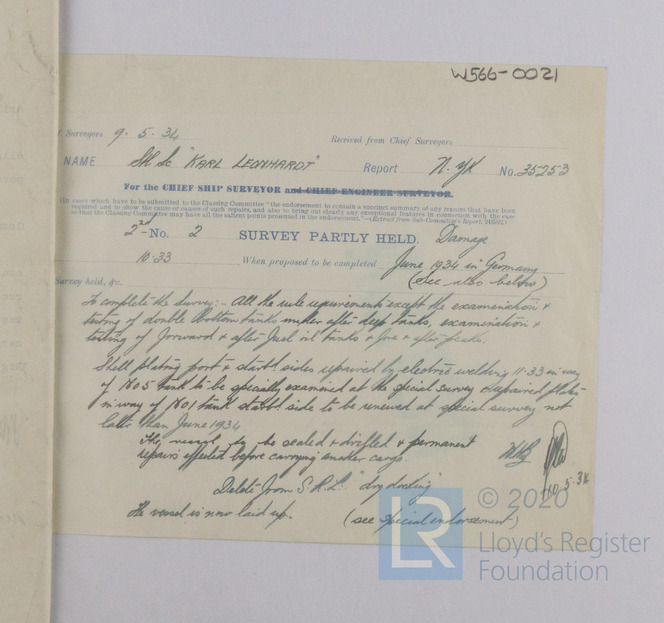 W566-0021
Surveyors 9. 5. 34 Received from Chief Surveyors
NAME "KARL LEONHARDT" Report N. Yk No. 35253
For the CHIEF SHIP SURVEYOR and CHIEF ENGINEER SURVEYOR.
(In cases which have to be submitted to the Classing Committee "the endorsement to contain a succinct summary of any repairs that have been
required and to show the cause or causes of such repairs, and also to bring out clearly any exceptional features in connection with the case
so that the Classing Committee may have all the salient points presented in the endorsement."—(Extract from Sub-Committee's Report,
2nd No. 2 SURVEY PARTLY HELD. Damage
10.33 When proposed to be completed June 1934 in Germany
(See also below)
Survey held, &c.
To complete the survey:- All the rule requirements except the examination &
testing of double bottom tanks under after deep tanks, examination &
testing of forward & after fuel oil tanks & fore & after peaks.
Shell plating port & starbd sides repaired by electric welding 11.33 in way
of No 5 tank to be specially examined at the special survey & repaired plates
in way of No 1 tank starbd side to be renewed at special survey not
later than June 1934
The vessel to be sealed & drilled & permanent
repairs effected before carrying another cargo.
10.5.34
Delete from S.R.L. "dry docking"
The vessel is now laid up. (see special endorsement)
© 2020
LR Lloyd's Register
Foundation